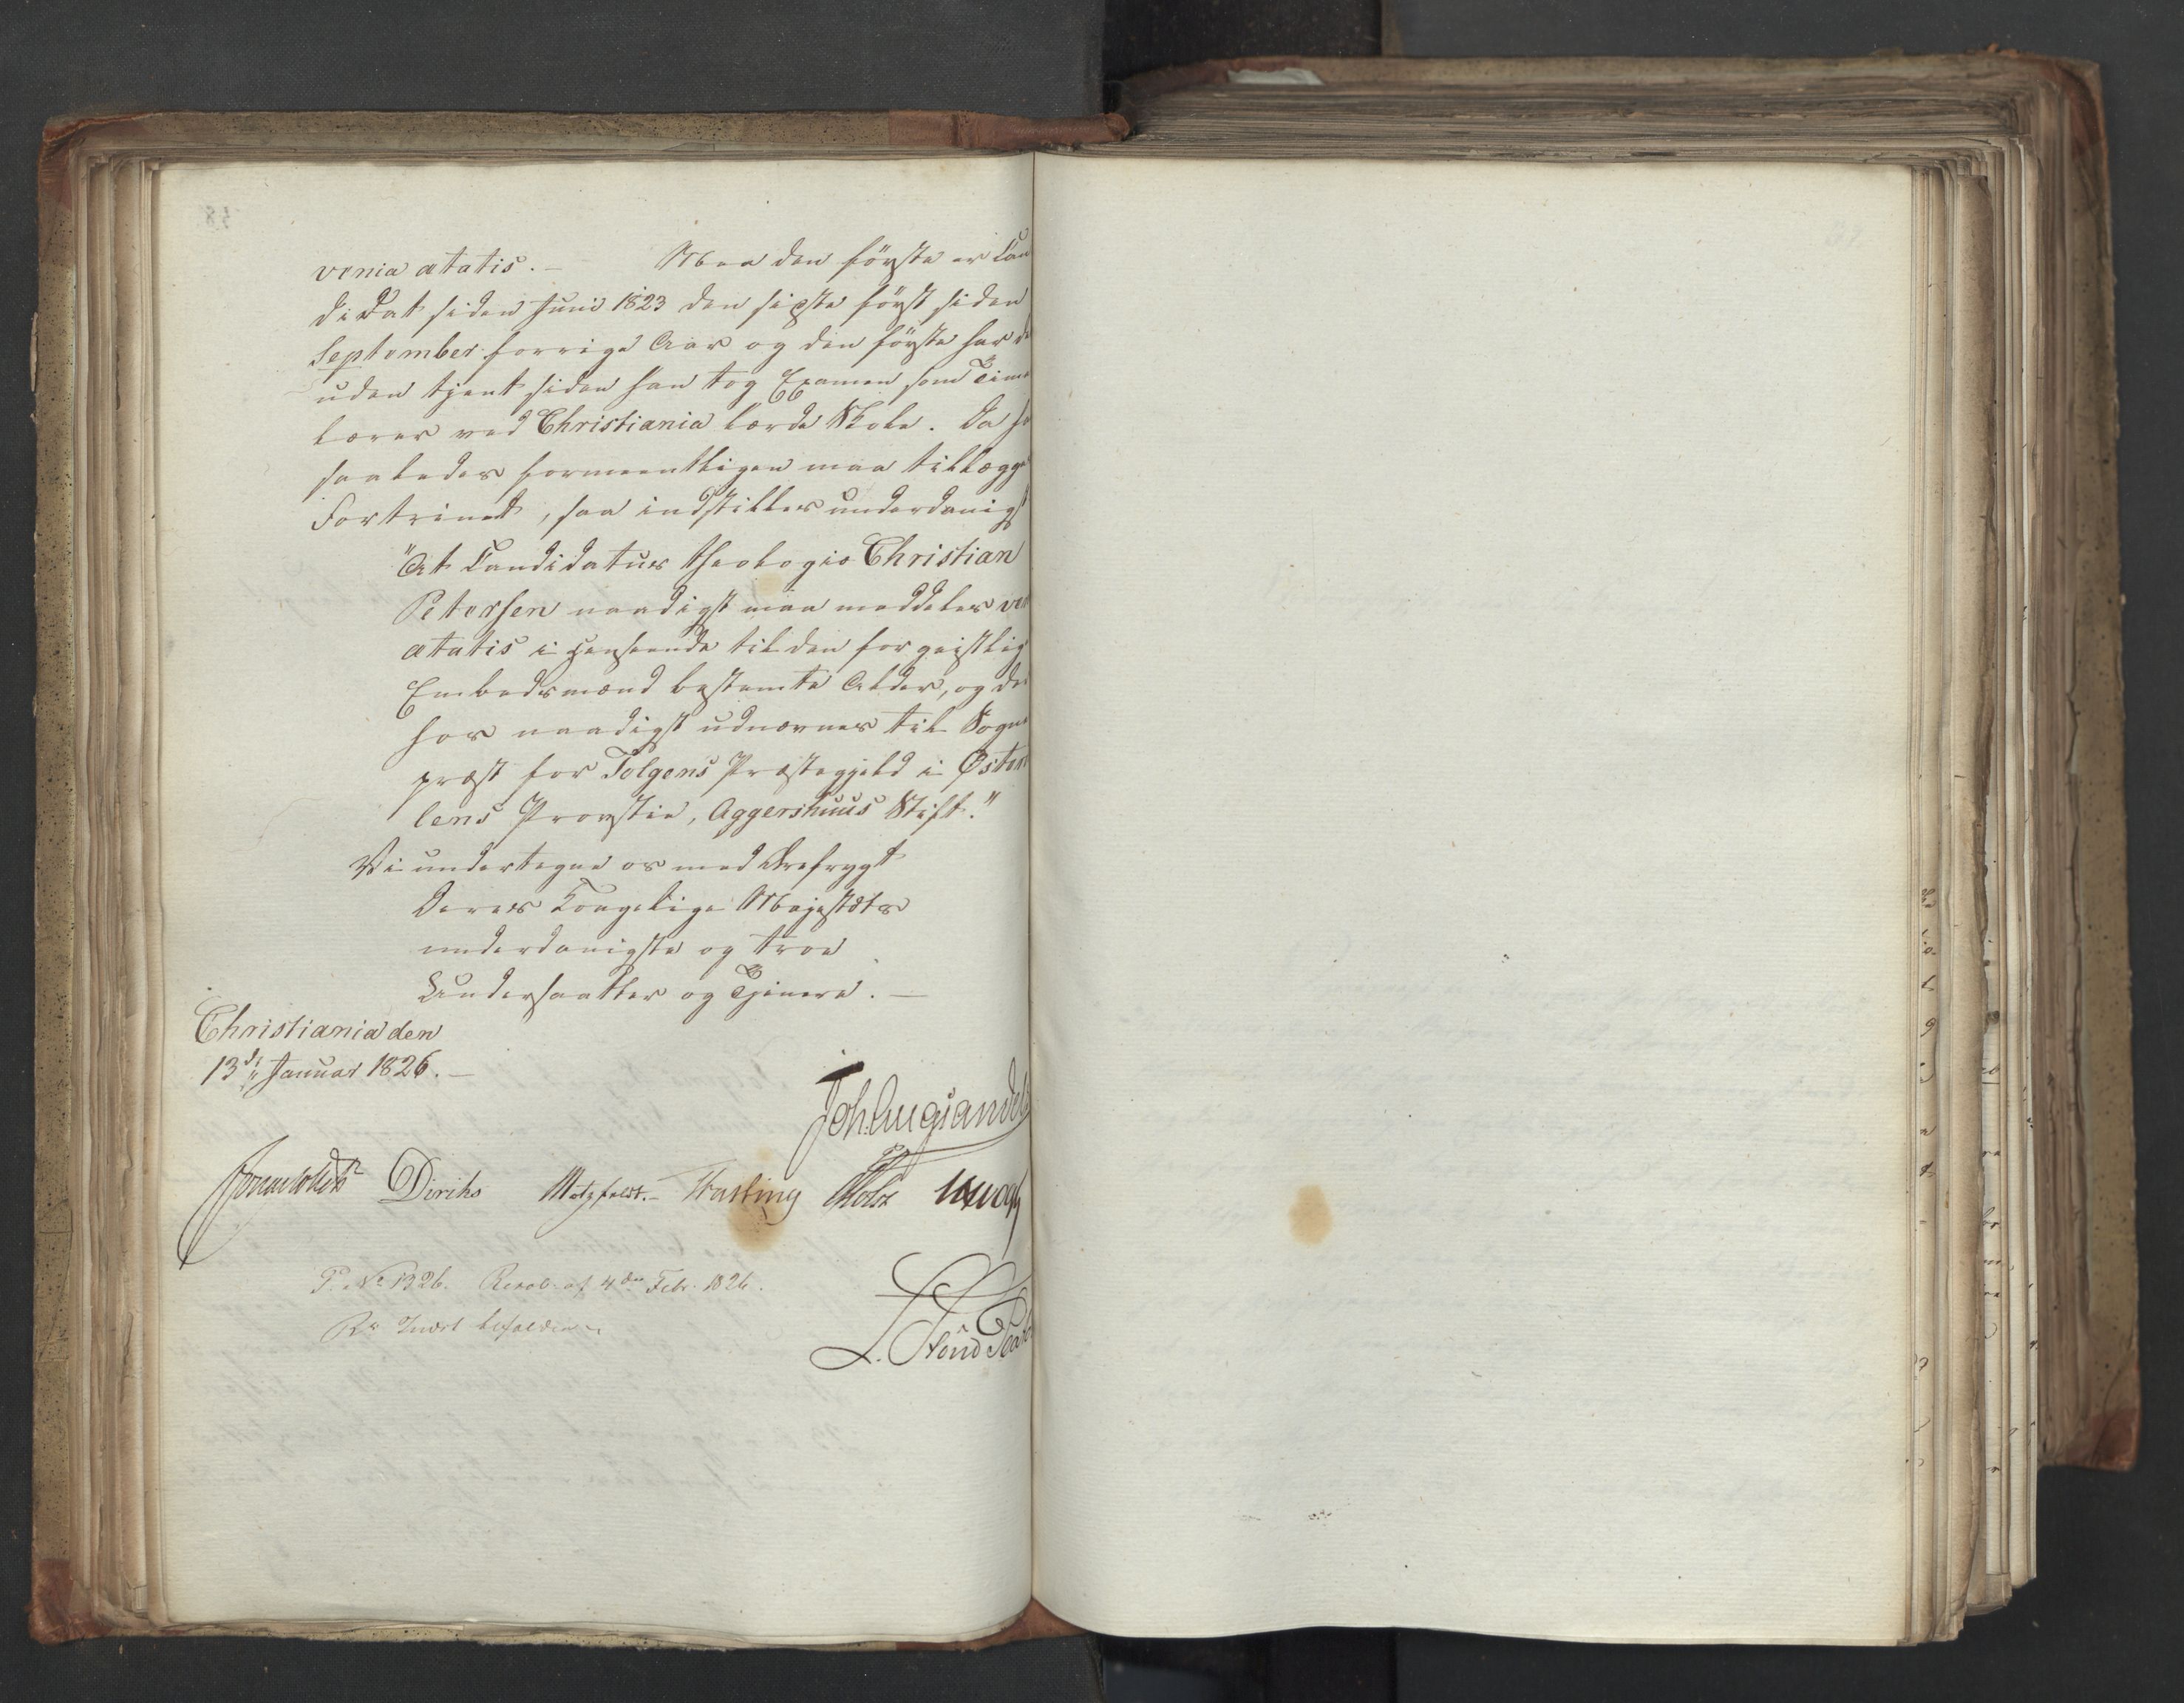 venia ætatis. — Men den förste er Can
didat siden Juni 1823 den sidste först siden
September forrige Aar og den förste har des
uden tjent siden han tog Examen som Time
lærer ved Christiania lærde Skole. Da ha
saaledes formeentligen maa tillægges
Fortrinet, saa indstilles underdanigst
"At Candidatus theologiæ Christian
Petersen naadigst maa meddeles ven
ætatis i Henseende til den for geistlig
Embedsmænd bestemte Alder, og der
hos naadigst udnævnes til Sogne
præst for Tolgens Præstegjeld i Øster
lens Provstie, Aggershuus Stift."
Vi undertegne os med Ærefrygt
Deres Kongelige Majestæts
underdanigste og troe
Undersaatter og Tjenere. —
Christiania den
13de Januar 1826. —
Joh. Aug. Sandels
Sommerhielm Diriks Motzfeldt. Fasting Holst Krog
P. No 13 26. Resol. af 4den Febr. 1826.